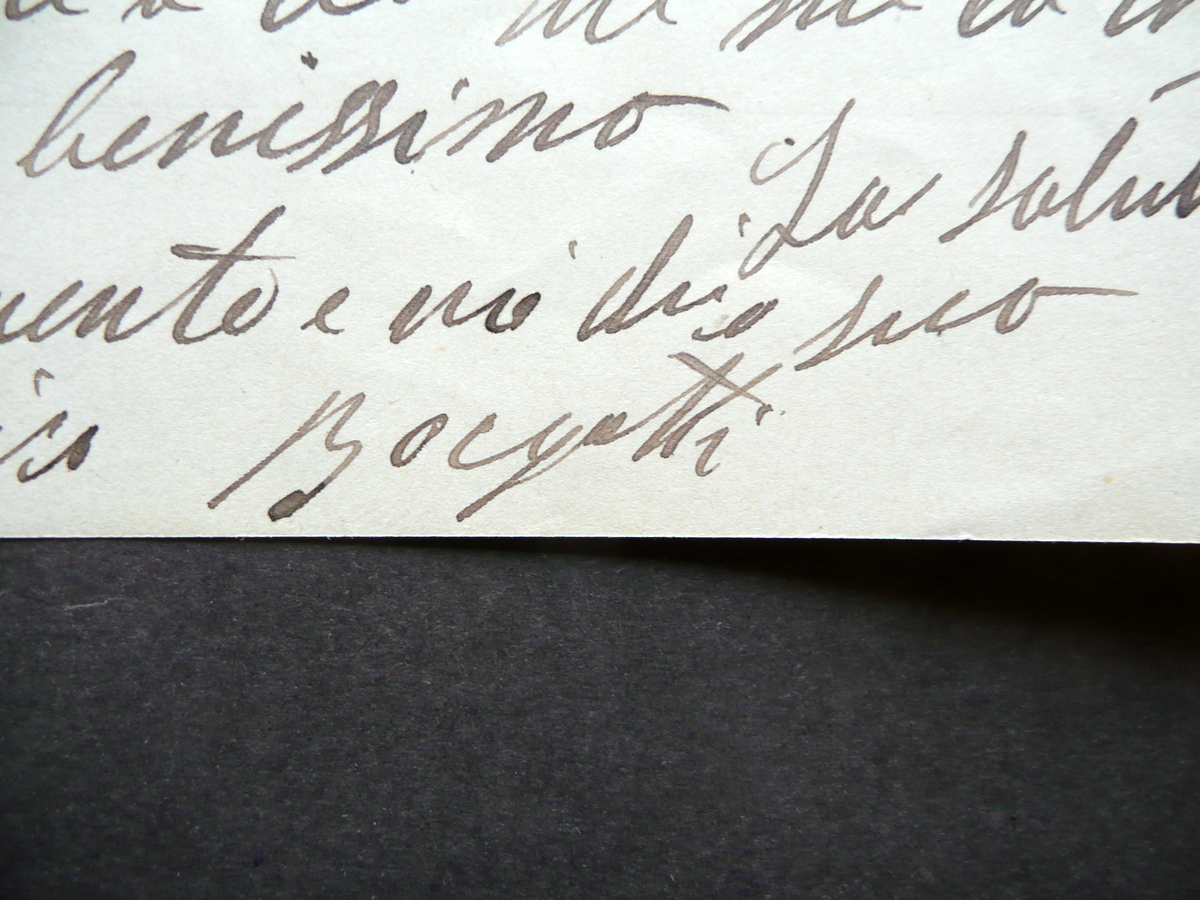 benissimo La salut
mente e mi dico suo
Borgatti